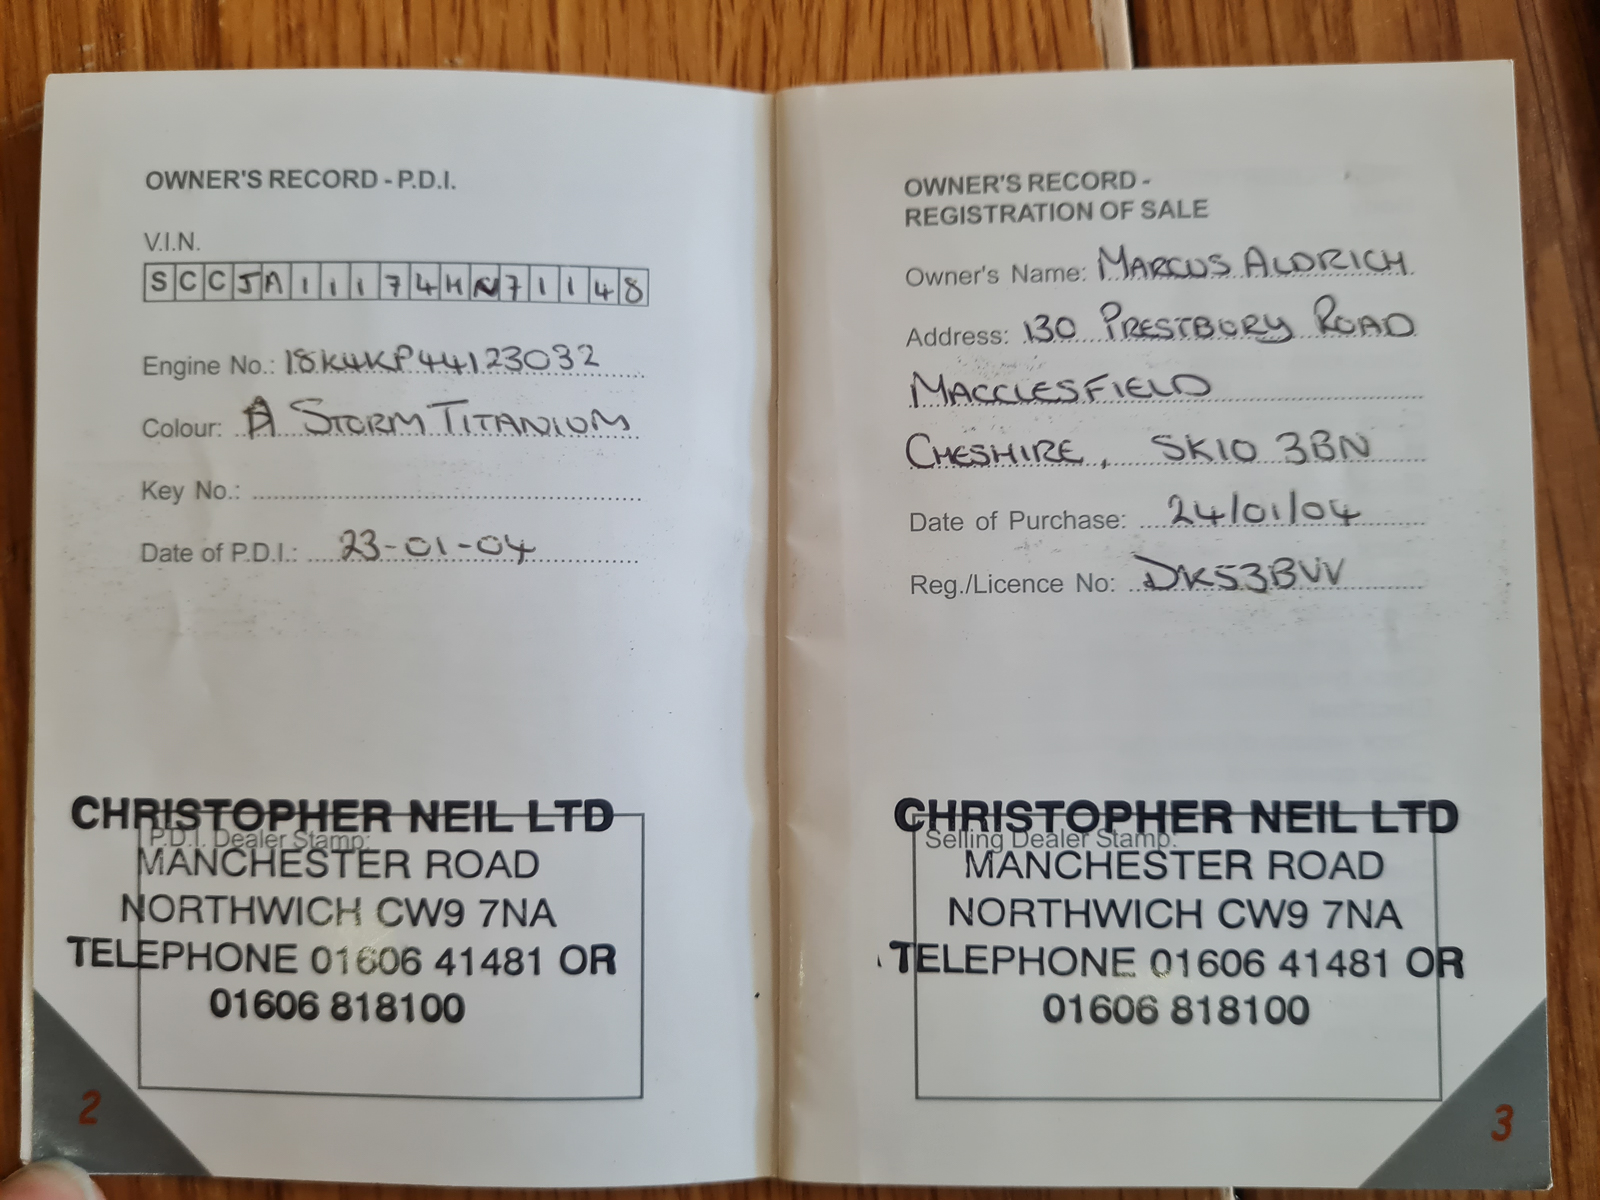 OWNER'S RECORD - P.D.I.
V.I.N.
SCCJA111744HN71148
Engine No.: 18K4KP44123032
Colour: A STORM TITANIUM
Key No.:
Date of P.D.I.: 23-01-04
CHRISTOPHER NEIL LTD
P.D.I. Dealer Stamp:
MANCHESTER ROAD
NORTHWICH CW9 7NA
TELEPHONE 01606 41481 OR
01606 818100
2
OWNER'S RECORD -
REGISTRATION OF SALE
Owner's Name: MARCUS ALDRICH
Address: 130 PRESTBURY ROAD
MACCLESFIELD
CHESHIRE, SK10 3BN
Date of Purchase: 24/01/04
Reg./Licence No: DK53BVV
CHRISTOPHER NEIL LTD
Selling Dealer Stamp:
MANCHESTER ROAD
NORTHWICH CW9 7NA
TELEPHONE 01606 41481 OR
01606 818100
3